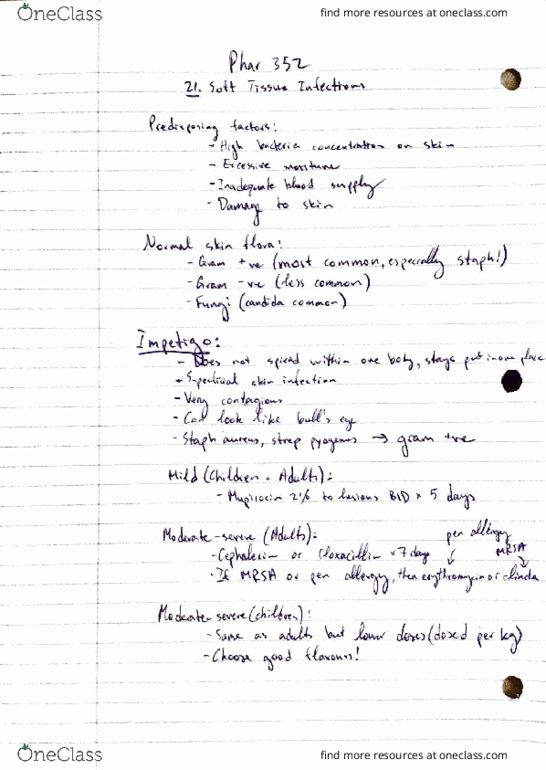 OneClass
find more resources at oneclass.com
Phar 352
21. Soft Tissue Infections
Predisposing factors:
- High bacteria concentration on skin
- Excessive moisture
- Inadequate blood supply
- Damage to skin
Normal skin flora:
- Gram +ve (most common, especially staph!)
- Gram -ve (less common)
- Fungi (candida common)
Impetigo:
- Does not spread within one body, stays put in one place
- Superficial skin infection
- Very contagious
- Can look like bull's eye
- Staph aureus, strep pyogenes → gram +ve
Mild (Children + Adults):
- Mupirocin 2% to lesions BID x 5 days
Moderate-severe (Adults):
pen allergy
MRSA
- Cephalexin or Cloxacillin x 7 days
- If MRSA or pen allergy, then erythromycin or clinda
Moderate-severe (children):
- Same as adults but lower doses (dosed per kg)
- Choose good flavours!
OneClass
find more resources at oneclass.com